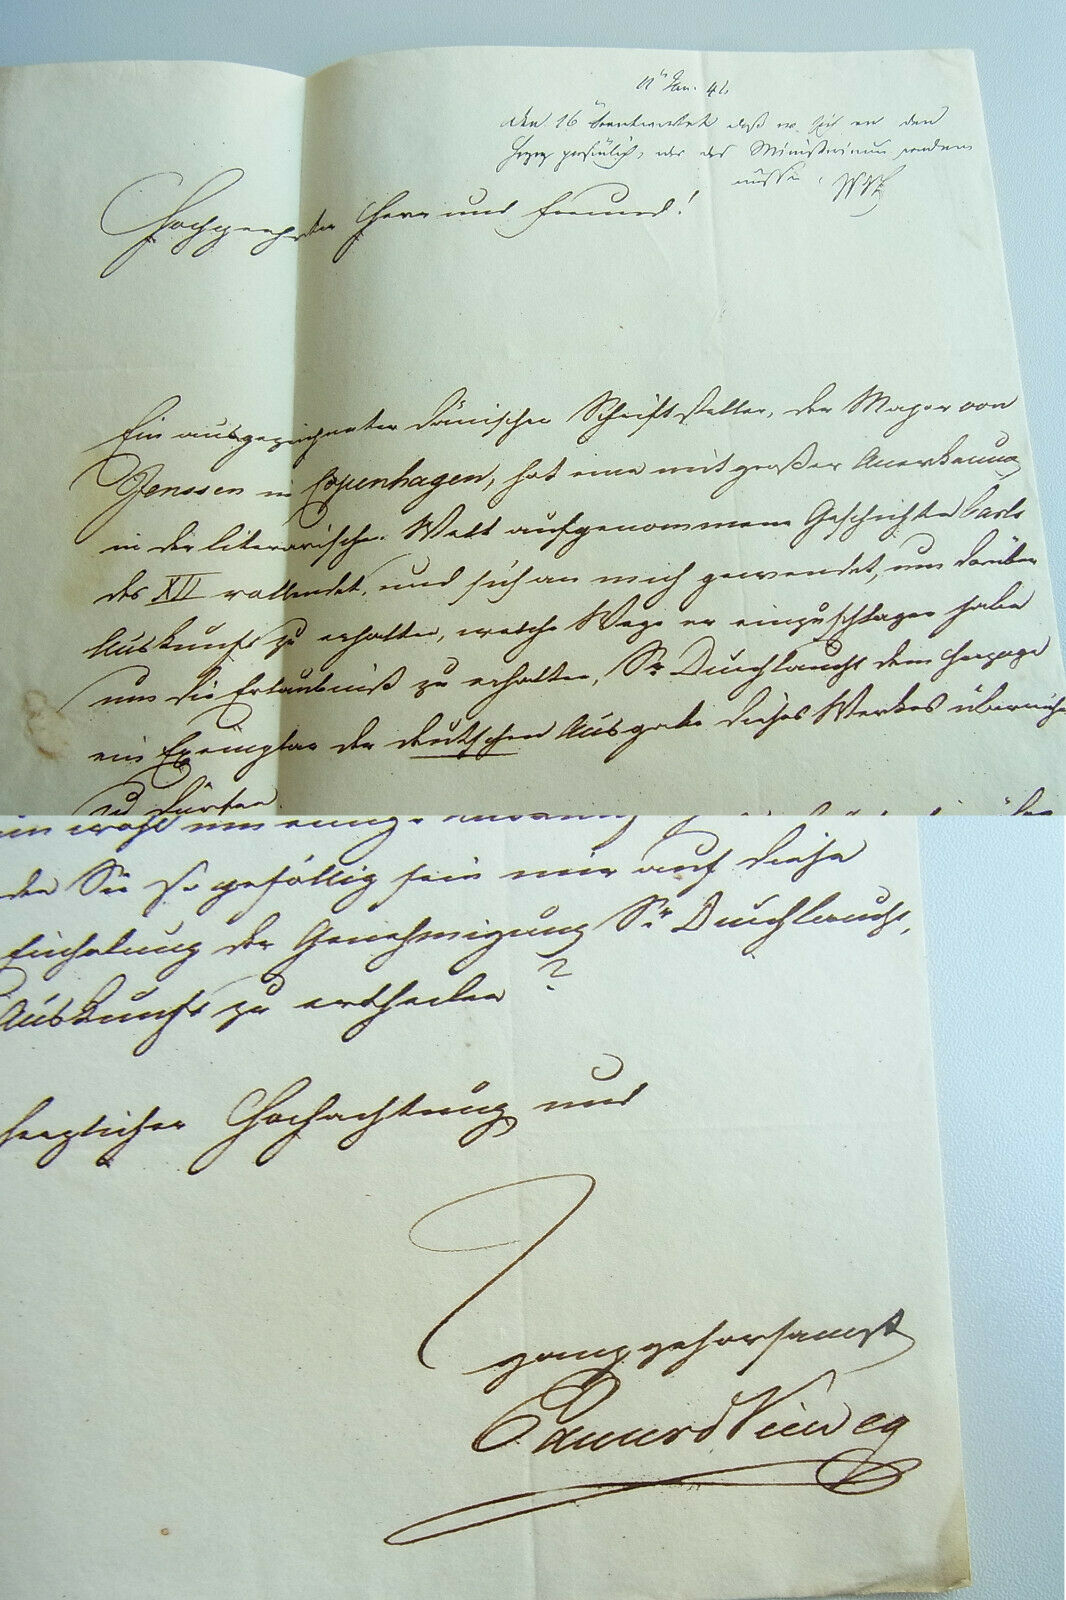 11n Jan. 41.
den 16 beantwortet daß er sich an den
Herzog persönlich, oder das Ministerium wenden
müsse.
Hochgeehrter Herr und Freund!
Ein ausgezeichneter dänischer Schriftsteller, der Major von
Jenssen in Copenhagen, hat eine mit großer Anerkennung
in der literarischen Welt aufgenommene Geschichte Carls
des XII vollendet, und sich an mich gewendet, um darüber
Auskunft zu erhalten, welche Wege er einzuschlagen habe
um die Erlaubniß zu erhalten, Sr Durchlaucht dem Herzoge
ein Exemplar der deutschen Ausgabe dieses Werkes überreichen
zu dürfen
wohl um einige
den Sie so gefällig sein mir auf diese
Einholung der Genehmigung Sr Durchlaucht,
Auskunft zu ertheilen?
herzlicher Hochachtung und
ganz gehorsamst
Eduard Vieweg